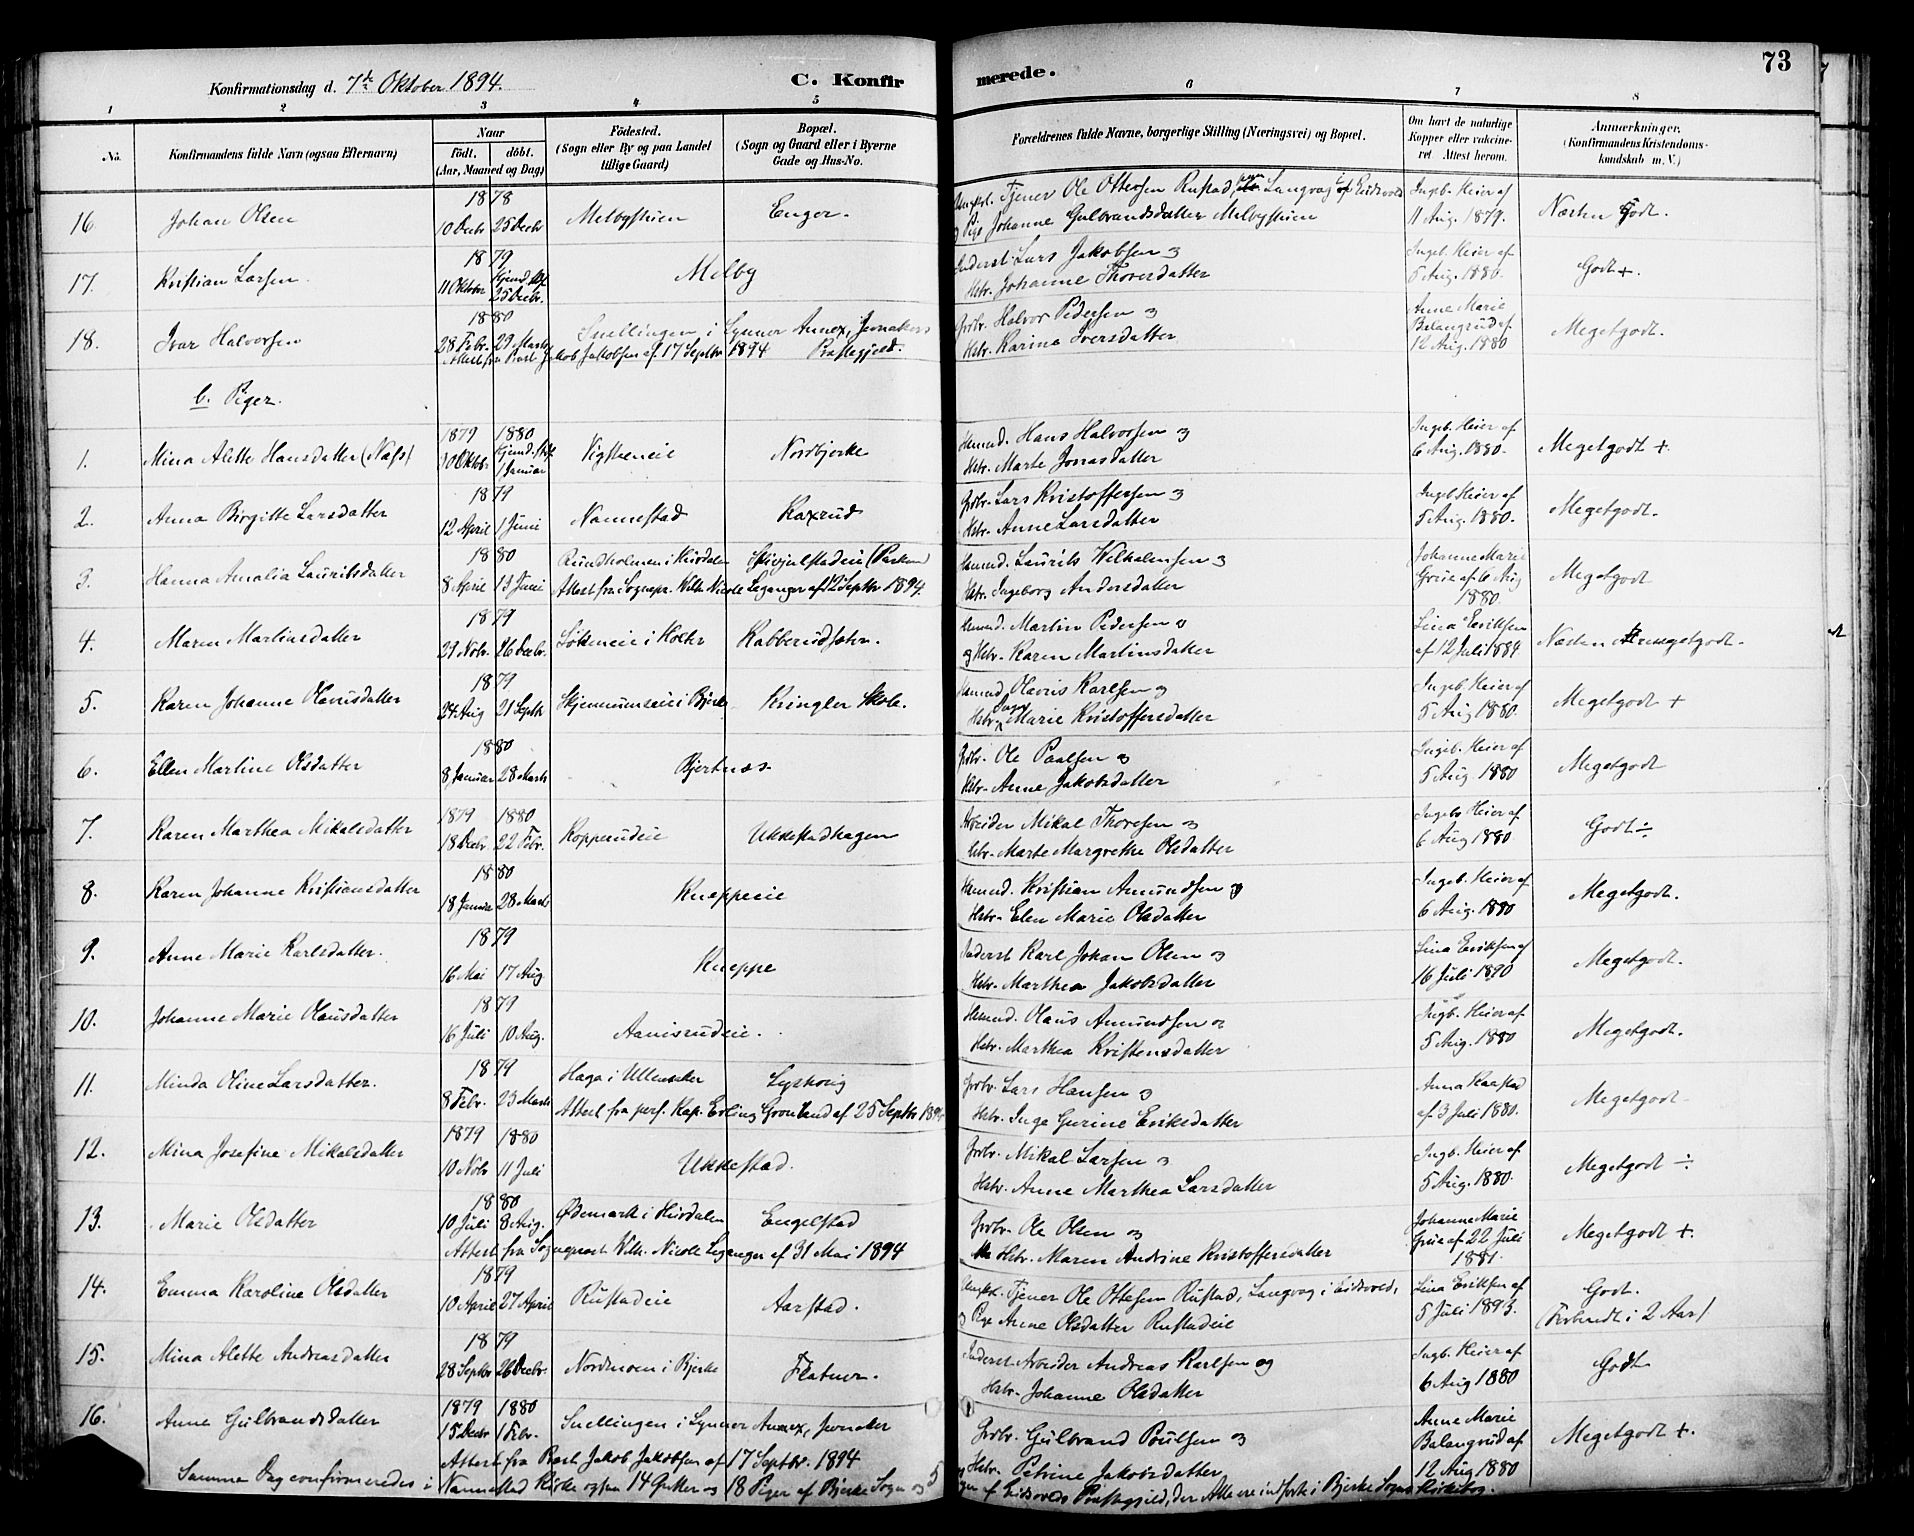 73
Konfirmationsdag d. 7de Oktober 1894.
C. Konfirmerede.
1 2 3 4 5 6 7 8
No. Konfirmandens fulde Navn (ogsaa Efternavn) Naar Födt. döbt. (Aar, Maaned og Dag) Födested. (Sogn eller By og paa Landet tillige Gaard) Bopæl. (Sogn og Gaard eller i Byerne Gade og Hus-No. Forældrenes fulde Navne, borgerlige Stilling (Næringsvei) og Bopæl. Om havt de naturlige Kopper eller vaccineret Attest herom. Anmærkninger, (Konfirmandens Kristendomskundskab m. V.)
16. Johan Olsen 1878 10 Decbr 25 Decbr Melbystuen Enger. Ungkl. Tjener Ole Ottersen Rustad, Langvag i Eidsvold
og Pige Johanne Gulbrandsdatter Melbystuen Ingeb. Heier af 11 Aug. 1879. Næsten Godt.
17. Kristian Larsen 1879 11 Oktober Hjemd. 25 Decbr. Melby Inderst Lars Jakobsen og
Hstr. Johanne Thoresdatter Ingeb. Heier af 5 Aug. 1880. Godt +.
18. Ivar Halvorsen 1880 28 Febr. 29 Marts Snellingen i Lynner Annex, Jevnakers Præstegjeld.
Attest fra Prost Jakob Jakobsen af 17 Septbr 1894
Grbr. Halvor Pedersen og
Hstr. Karina Iversdatter Anne Marie Balangrud af 12 Aug. 1880 Megetgodt.
b. Piger.
1. Mina Alette Hansdatter (Næss) 1879 30 Oktbr 1880 Hjemd. 1 Januar Vigsteneie Nordbjerke Husmd. Hans Halvorsen og
Hstr. Marte Jonasdatter Ingeb. Heier af 6 Aug. 1880. Megetgodt +
2. Anna Birgitte Larsdatter 1879 12 April 1 Juni Nannestad Kaxrud Grbr. Lars Kristoffersen og
Hstr. Anne Larsdatter Ingeb. Heier af 5 Aug. 1880. Megetgodt.
3. Hanna Amalia Lauritsdatter 1880 8 April 13 Juni Rundholmen i Hurdalen
Attest fra Sognepr. Wilh. Nicole Leganger af 12 Septbr 1894.
Husmd. Laurits Wilhelmsen og
Hstr. Ingeborg Andersdatter Johanne Marie Grue af 6 Aug 1880. Megetgodt
4. Maren Martinsdatter 1879 29 Nobr. 26 Decbr. i Holter Kabberud Husmd. Martin Pedersen og
og Hstr. Karen Martinsdatter Lina Eriksen af 12 Juli 1884 Næsten megetgodt.
5. Karen Johanne Olavusdatter 1879 24 Aug 21 Septbr i Bjerke Kringler Skole. Husmd Olavus Karlsen og
Hstr. Marie Kristoffersdatter Ingeb. Heier af 5 Aug 1880. Megetgodt +
6. Ellen Martine Olsdatter 1880 8 Januar 28 Marts Bjertnæs Grbr. Ole Paalsen og
Hstr. Anne Jakobsdatter Ingeb. Heier af 5 Aug. 1880 Megetgodt
7. Karen Marthea Mikalsdatter 1879 18 Decbr 1880 22 Febr. Kopperudeie Ukkestadhagen Arbeider Mikal Thoresen og
Hstr. Marte Margrethe Olsdatter Ingeb. Heier af 6 Aug 1880. Godt ÷
8. Karen Johanne Kristiansdatter 1880 18 Januar 28 Marts Kneppeeie Husmd. Kristian Amundsen og
Hstr. Elen Marie Olsdatter Ingeb. Heier af 6 Aug. 1880 Megetgodt.
9. Anne Marie Karlsdatter. 1879 16 Mai 17 Aug Kneppe Inderst Karl Johan Olsen og
Hstr. Marthea Jakobsdatter Lina Eriksen af 16 Juli 1890 Megetgodt.
10. Johanne Marie Olausdatter 1879 16 Juli 10 Aug. Aamisrudeie. Husmd. Olaus Amundsen og
Hstr. Marthea Kristensdatter Ingb. Heier af 5 Aug. 1880 Megetgodt.
11. Minda Oline Larsdatter. 1879 8 Febr. 23 Marts Haga i Ullensaker Lyshoug
Attest fra pers. Kap. Erling Grønland af 25 Septbr 1894
Grbr. Lars Hansen og
Hstr. Inge Gurine Eriksdatter Anna Raastad af 3 Juli 1880. Megetgodt
12. Mina Josefine Mikalsdatter 1879 10 Nobr 1880 11 Juli Ukkestad. Grbr. Mikal Larsen og
Hstr. Anne Marthea Larsdatter Ingb. Heier af 5 Aug. 1880. Megetgodt ÷
13. Marie Olsdatter 1880 10 Juli 8 Aug. Ødemark i Hurdalen Engelstad
Attest fra Sogneprest Wilh. Nicole Leganger af 31 Mai 1894
Grbr. Ole Olsen og
Hstr. Maren Andrine Kristoffersdatter Johanne Marie Grue af 22 Juli 1881. Megetgodt +
14. Emma Karoline Olsdatter 1879 10 April 27 April Rustadeie Aarstad. Ungkl. Tjener Ole Ottesen Rustad, Langvag i Eidsvold,
og Pige Anne Olsdatter Rustadeie Lina Eriksen af 5 Juli 1893. Godt. (Forberedt i 2 Aar)
15. Mina Alette Andreasdatter 1879 28 Septbr 26 Decbr. Nordmoen i Bjerke Flatner. Inderst Arbeider Andreas Karlsen og
Hstr. Johanne Olsdatter Ingb. Heier af 6 Aug 1880 Godt
16. Anne Gulbrandsdatter 1879 15 Decbr 1880 1 Febr. Snellingen i Lynner Annex, Jevnaker
Attest fra Prost Jakob Jakobsen af 17 Septbr. 1894
Grbr. Gulbrand Poulsen og
Hstr. Petrine Jakobsdatter Anne Marie Balangrud af 12 Aug 1880 Megetgodt +.
Samme Dag confirmeredes i Nannestad Kirke ogsaa 14 Gutter og 18 Piger af Bjerke Sogn og 5
Piger af Eidsvolds Præstegjeld, der Alle ere indførte i Bjerke Sogns Kirkebog.